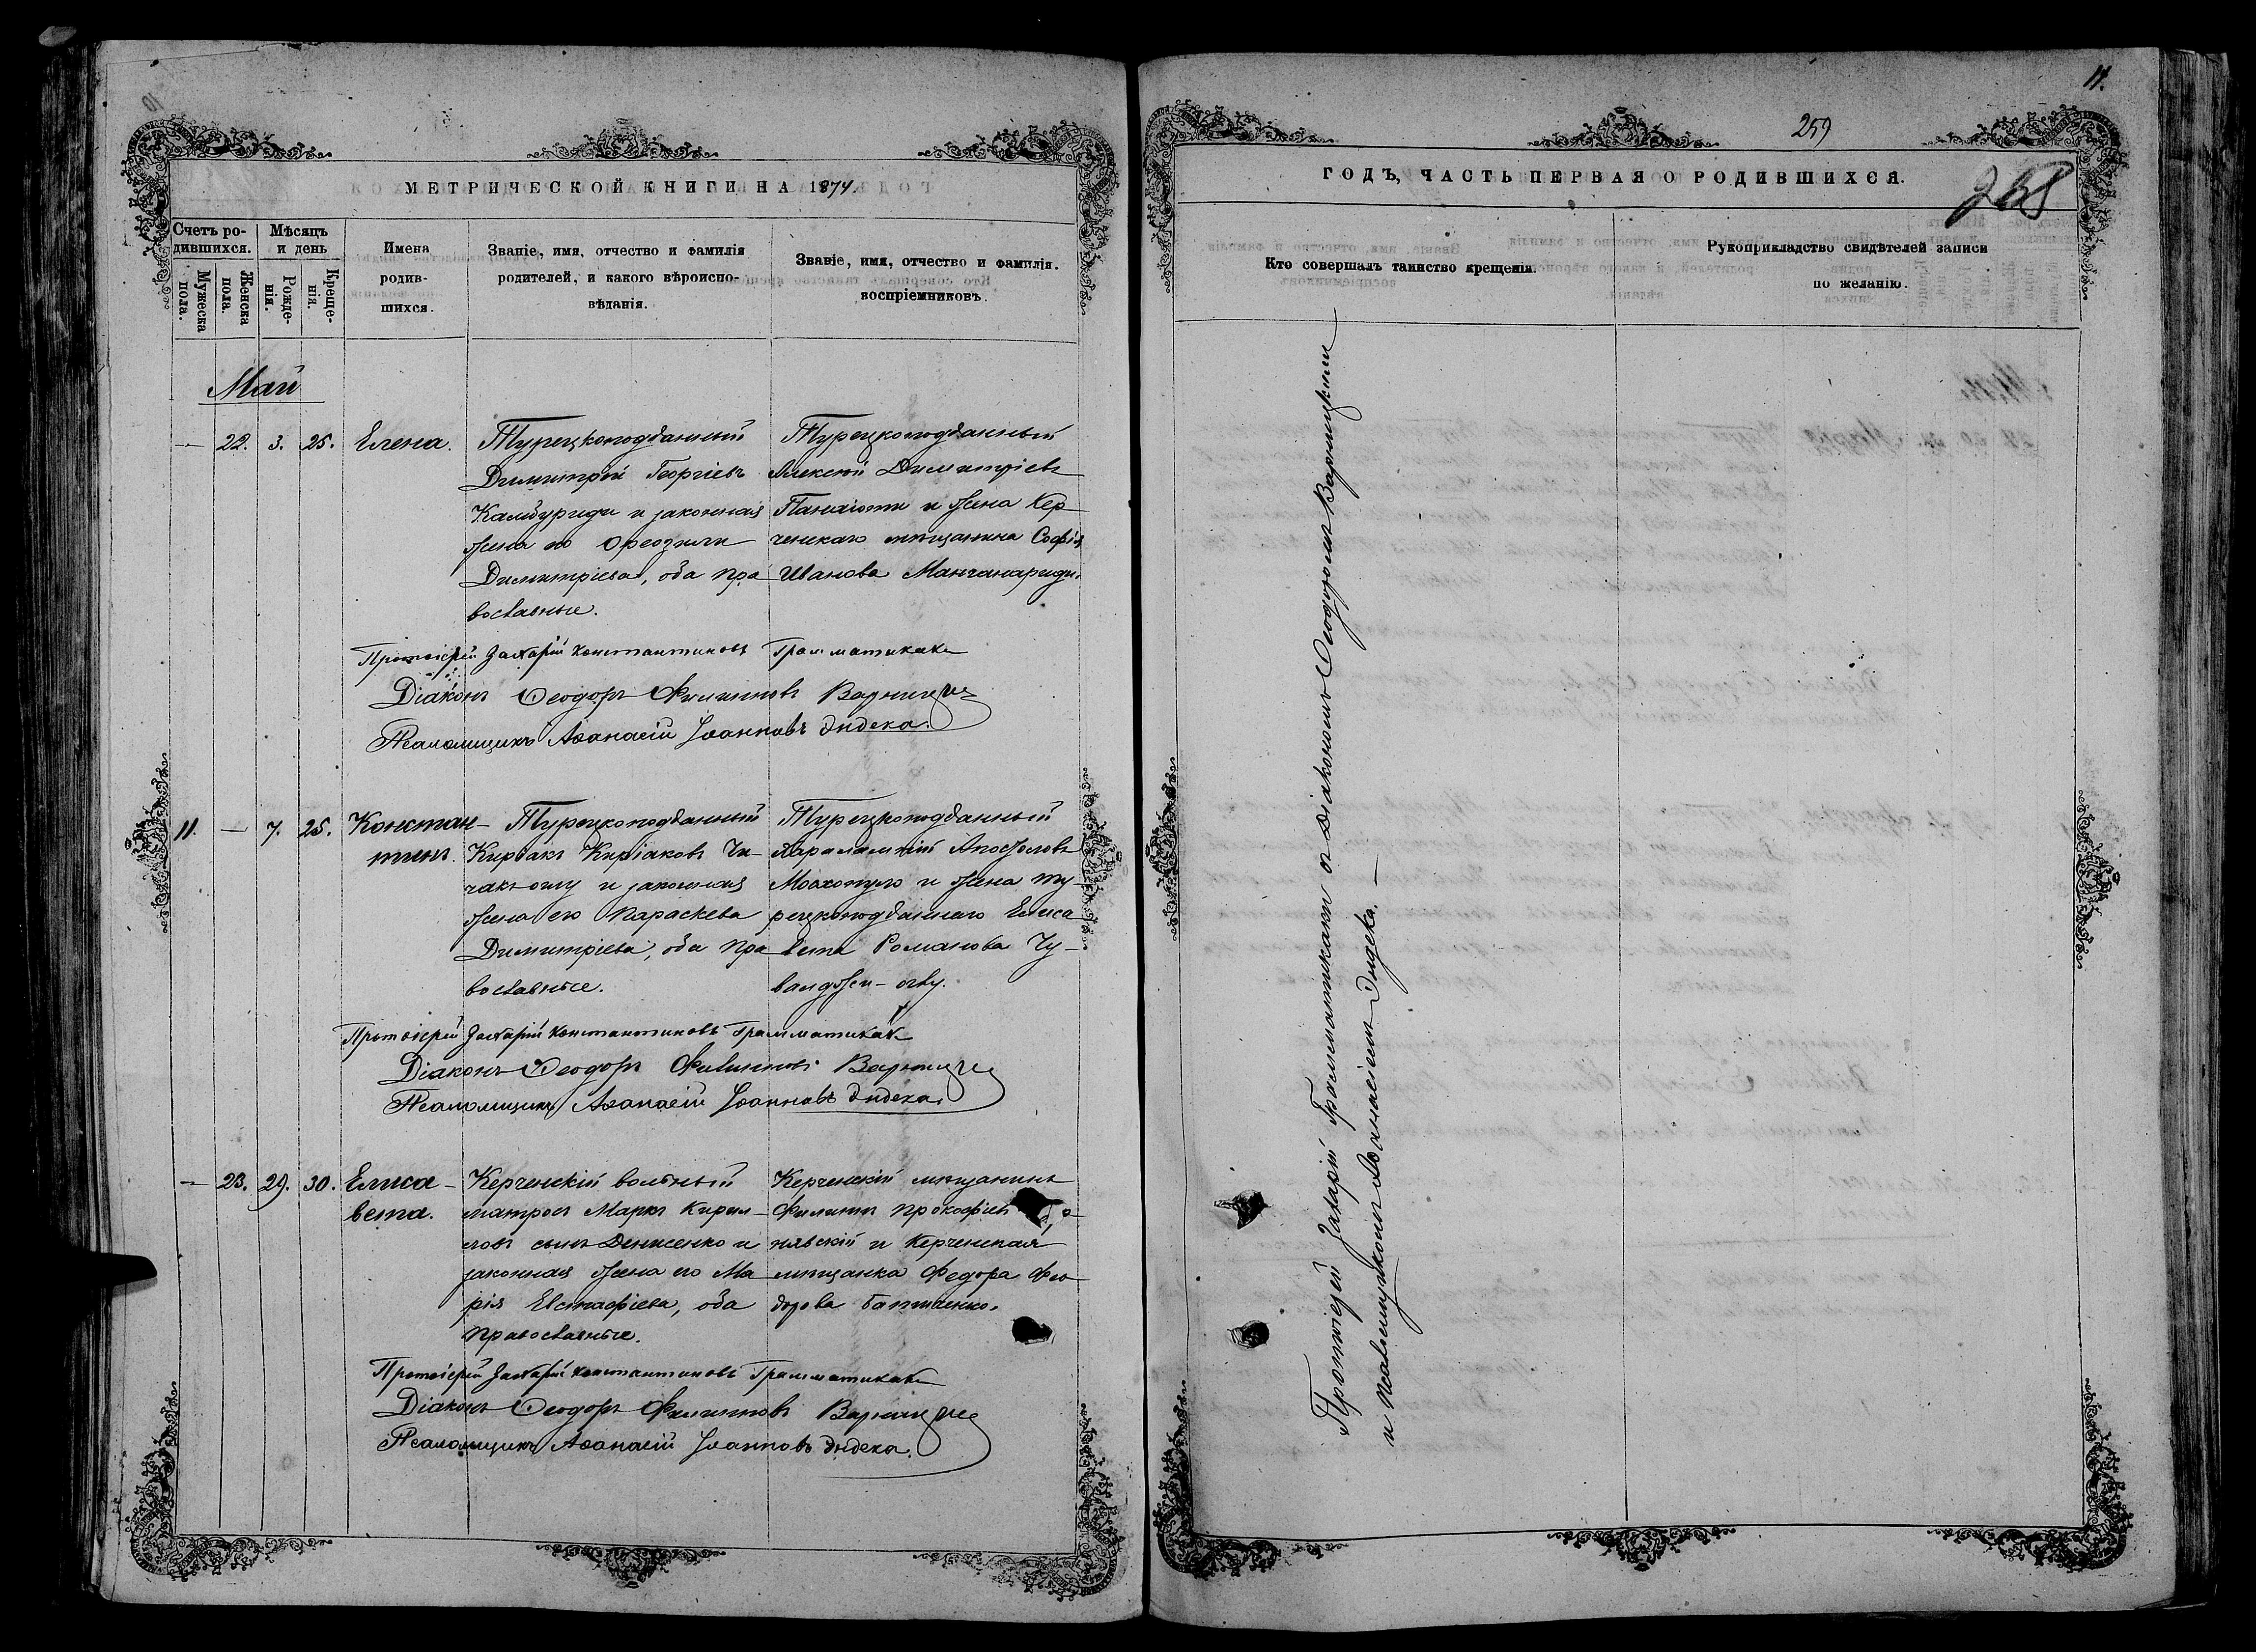 МЕТРИЧЕСКОЙ КНИГИ НА 1874.
Счетъ ро-
дившихся.
Мужеска
пола.
Женска
пола.
Мѣсяцъ
и день
Рожде-
нія.
Креще-
нія.
Имена
родив-
шихся.
Званіе, имя, отчество и фамилія
родителей, и какого вѣроиспо-
вѣданія.
Званіе, имя, отчество и фамилія.
воспріемниковъ.
Май
— 22. 3. 25. Елена.
Турецкоподданный
Димитрій Георгіевъ
Камбуриди и законная
жена его
Димитріева, оба пра
вославные.
Турецкоподданный
Алексій Димитріевъ
Панаіоти и жена Кер
ченскаго мѣщанина Софія
Иванова Манганариди.
Протоіерей Захарій Константиновъ Грамматикаки
Діаконъ Ѳеодоръ Филипповъ Варницкій
Псаломщикъ Аѳанасій Іоанновъ Дидека.
11. — 7. 25. Констан-
тинъ.
Турецкоподданный
Киріакъ Киріаковъ Чи-
чакъ оглу и законная
жена его Параскева
Димитріева, оба пра
вославные.
Турецкоподданный
Харалампій Апостоловъ
Мосхопуло и жена ту-
рецкоподданнаго Елиса
вета Романова Чу-
ванджи-оглу.
Протоіерей Захарій Константиновъ Грамматикаки
Діаконъ Ѳеодоръ Филипповъ Варницкій
Псаломщикъ Аѳанасій Іоанновъ Дидека.
— 23. 29. 30. Елиса-
вета.
Керченскій вольный
матросъ Маркъ Кирил-
ловъ сынъ Денисенко и
законная жена его Ма
рія Евстафіева, оба
православные.
Керченскій мѣщанинъ
Филиппъ Прокофіевъ
нявскій и Керченская
мѣщанка Федора Фео
дорова
Протоіерей Захарій Константиновъ Грамматикаки
Діаконъ Ѳеодоръ Филипповъ Варницкій
Псаломщикъ Аѳанасій Іоанновъ Дидека.
11.
259
ГОДЪ, ЧАСТЬ ПЕРВАЯ О РОДИВШИХСЯ.
Кто совершалъ таинство крещенія.
Рукоприкладство свидѣтелей записи
по желанію.
Протоіерей Захарій Грамматикаки съ Діакономъ Ѳеодоромъ Варницкимъ
и псаломщикомъ Аѳанасіемъ Дидека. —